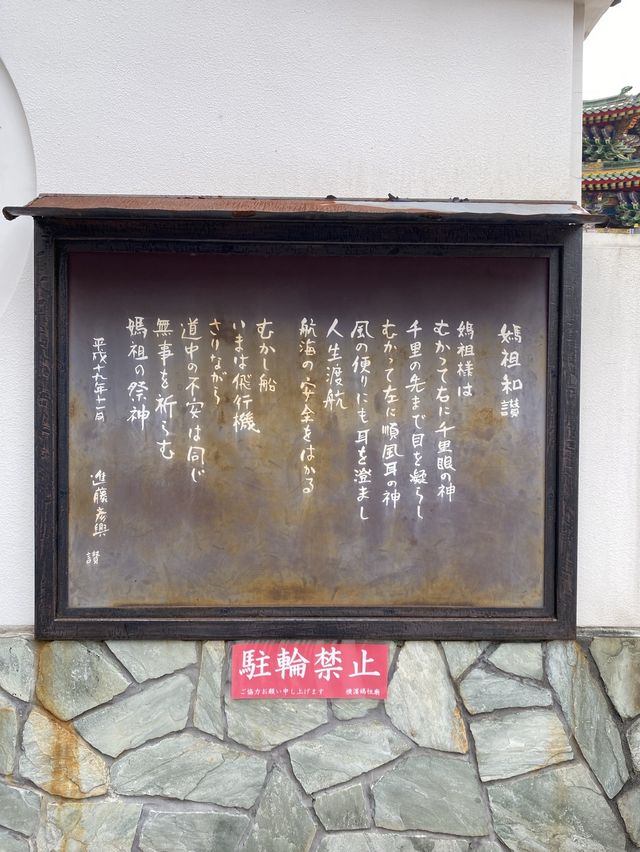 媽祖和讃
媽祖様は
むかって右に千里眼の神
千里の先まで目を凝らし
むかって左に順風耳の神
風の便りにも耳を澄まし
人生渡航
航海の安全をはかる
むかし船
いまは飛行機
さりながら
道中の不安は同じ
無事を祈らむ
媽祖の祭神
平成十九年十一月 進藤彦興 讃
駐輪禁止
ご協力お願い申し上げます 横濱媽祖廟